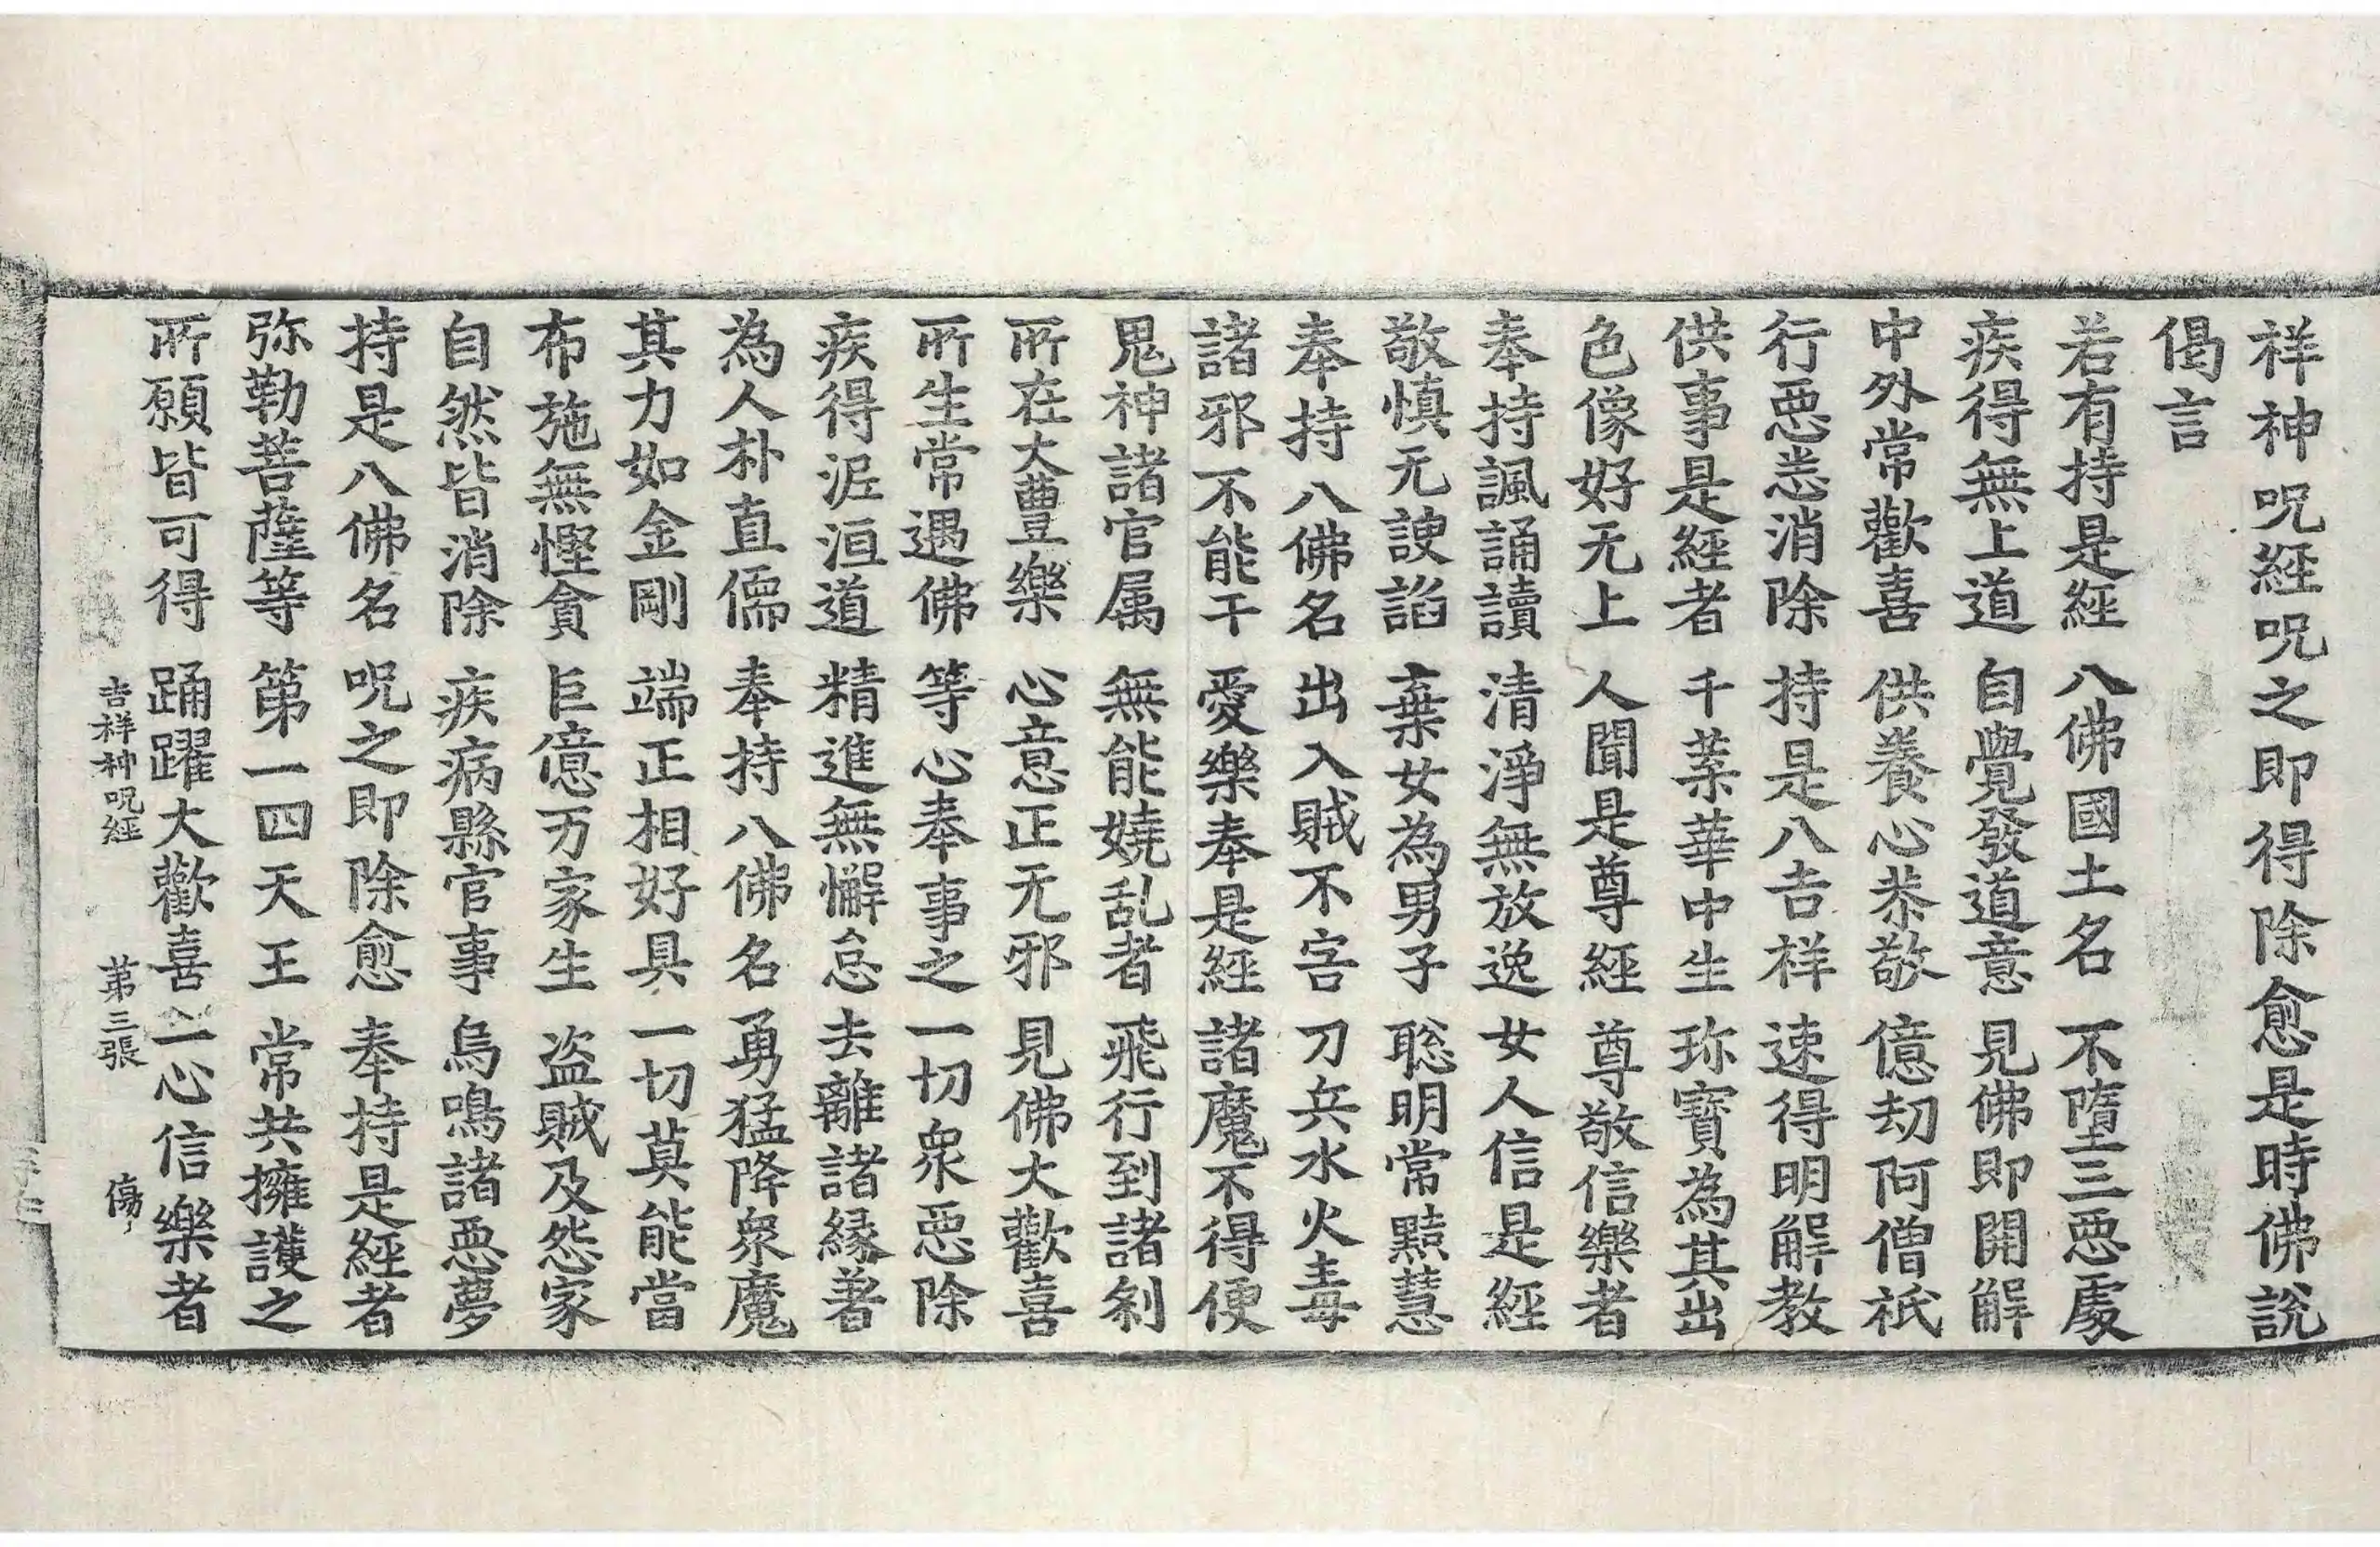 祥神呪經呪之即得除愈是時佛說
偈言
若有持是經 八佛國土名 不墮三惡處
疾得無上道 自覺發道意 見佛即開解
中外常歡喜 供養心恭敬 億劫阿僧祇
行惡恙消除 持是八吉祥 速得明解教
供事是經者 千葉華中生 珎寶為其出
色像好无上 人聞是尊經 尊敬信樂者
奉持諷誦讀 清淨無放逸 女人信是經
敬慎无諛諂 棄女為男子 聡明常黠慧
奉持八佛名 出入賊不害 刀兵水火毒
諸邪不能干 愛樂奉是經 諸魔不得便
鬼神諸官属 無能嬈乱者 飛行到諸剎
所在大豊樂 心意正无邪 見佛大歡喜
所生常遇佛 等心奉事之 一切衆惡除
疾得泥洹道 精進無懈怠 去離諸緣著
為人朴直儒 奉持八佛名 勇猛降衆魔
其力如金剛 端正相好具 一切莫能當
布施無慳貪 巨億万家生 盗賊及怨家
自然皆消除 疾病縣官事 烏鳴諸惡夢
持是八佛名 呪之即除愈 奉持是經者
弥勒菩薩等 第一四天王 常共擁護之
所願皆可得 踊躍大歡喜 一心信樂者
吉祥神呪經 苐三張 傷